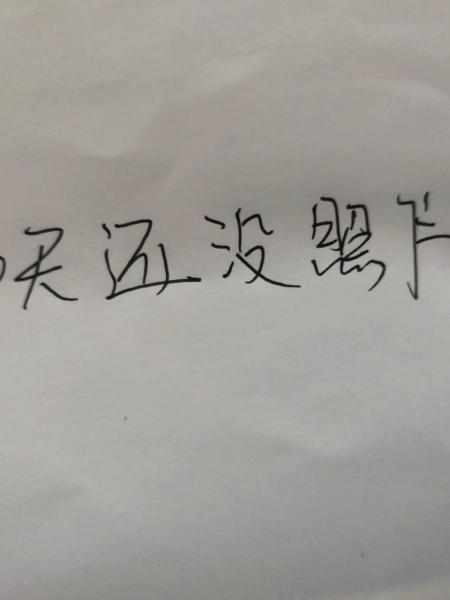 天还没黑下